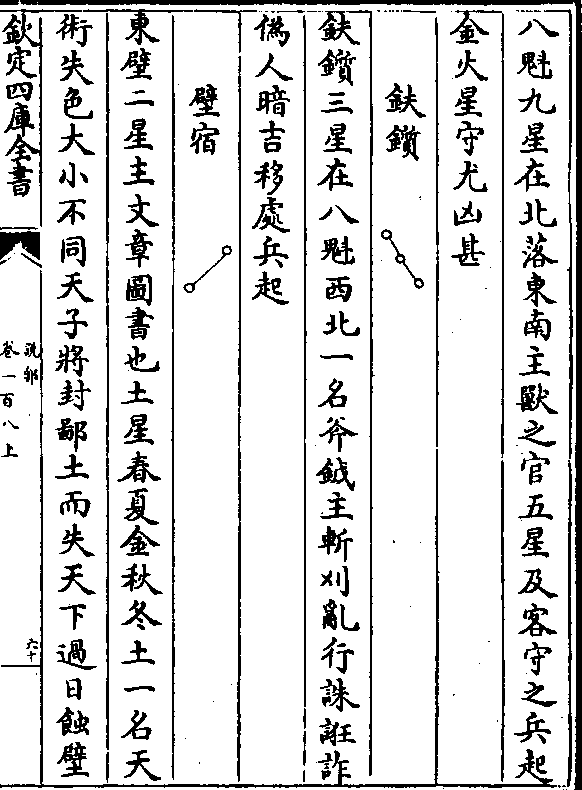 八魁九星在北落東南主獸之官五星及客守之兵起
金火星守尤凶甚
鈇鑕
鈇鑕三星在八魁西北一名斧鉞主斬刈亂行誅誑詐
僞人暗吉移處兵起
壁宿
東壁二星主文章圖書也土星春夏金秋冬土一名天
術失色大小不同天子將封鄙土而失天下過日蝕壁
欽定四庫全書
說郛
卷一百八上
六十